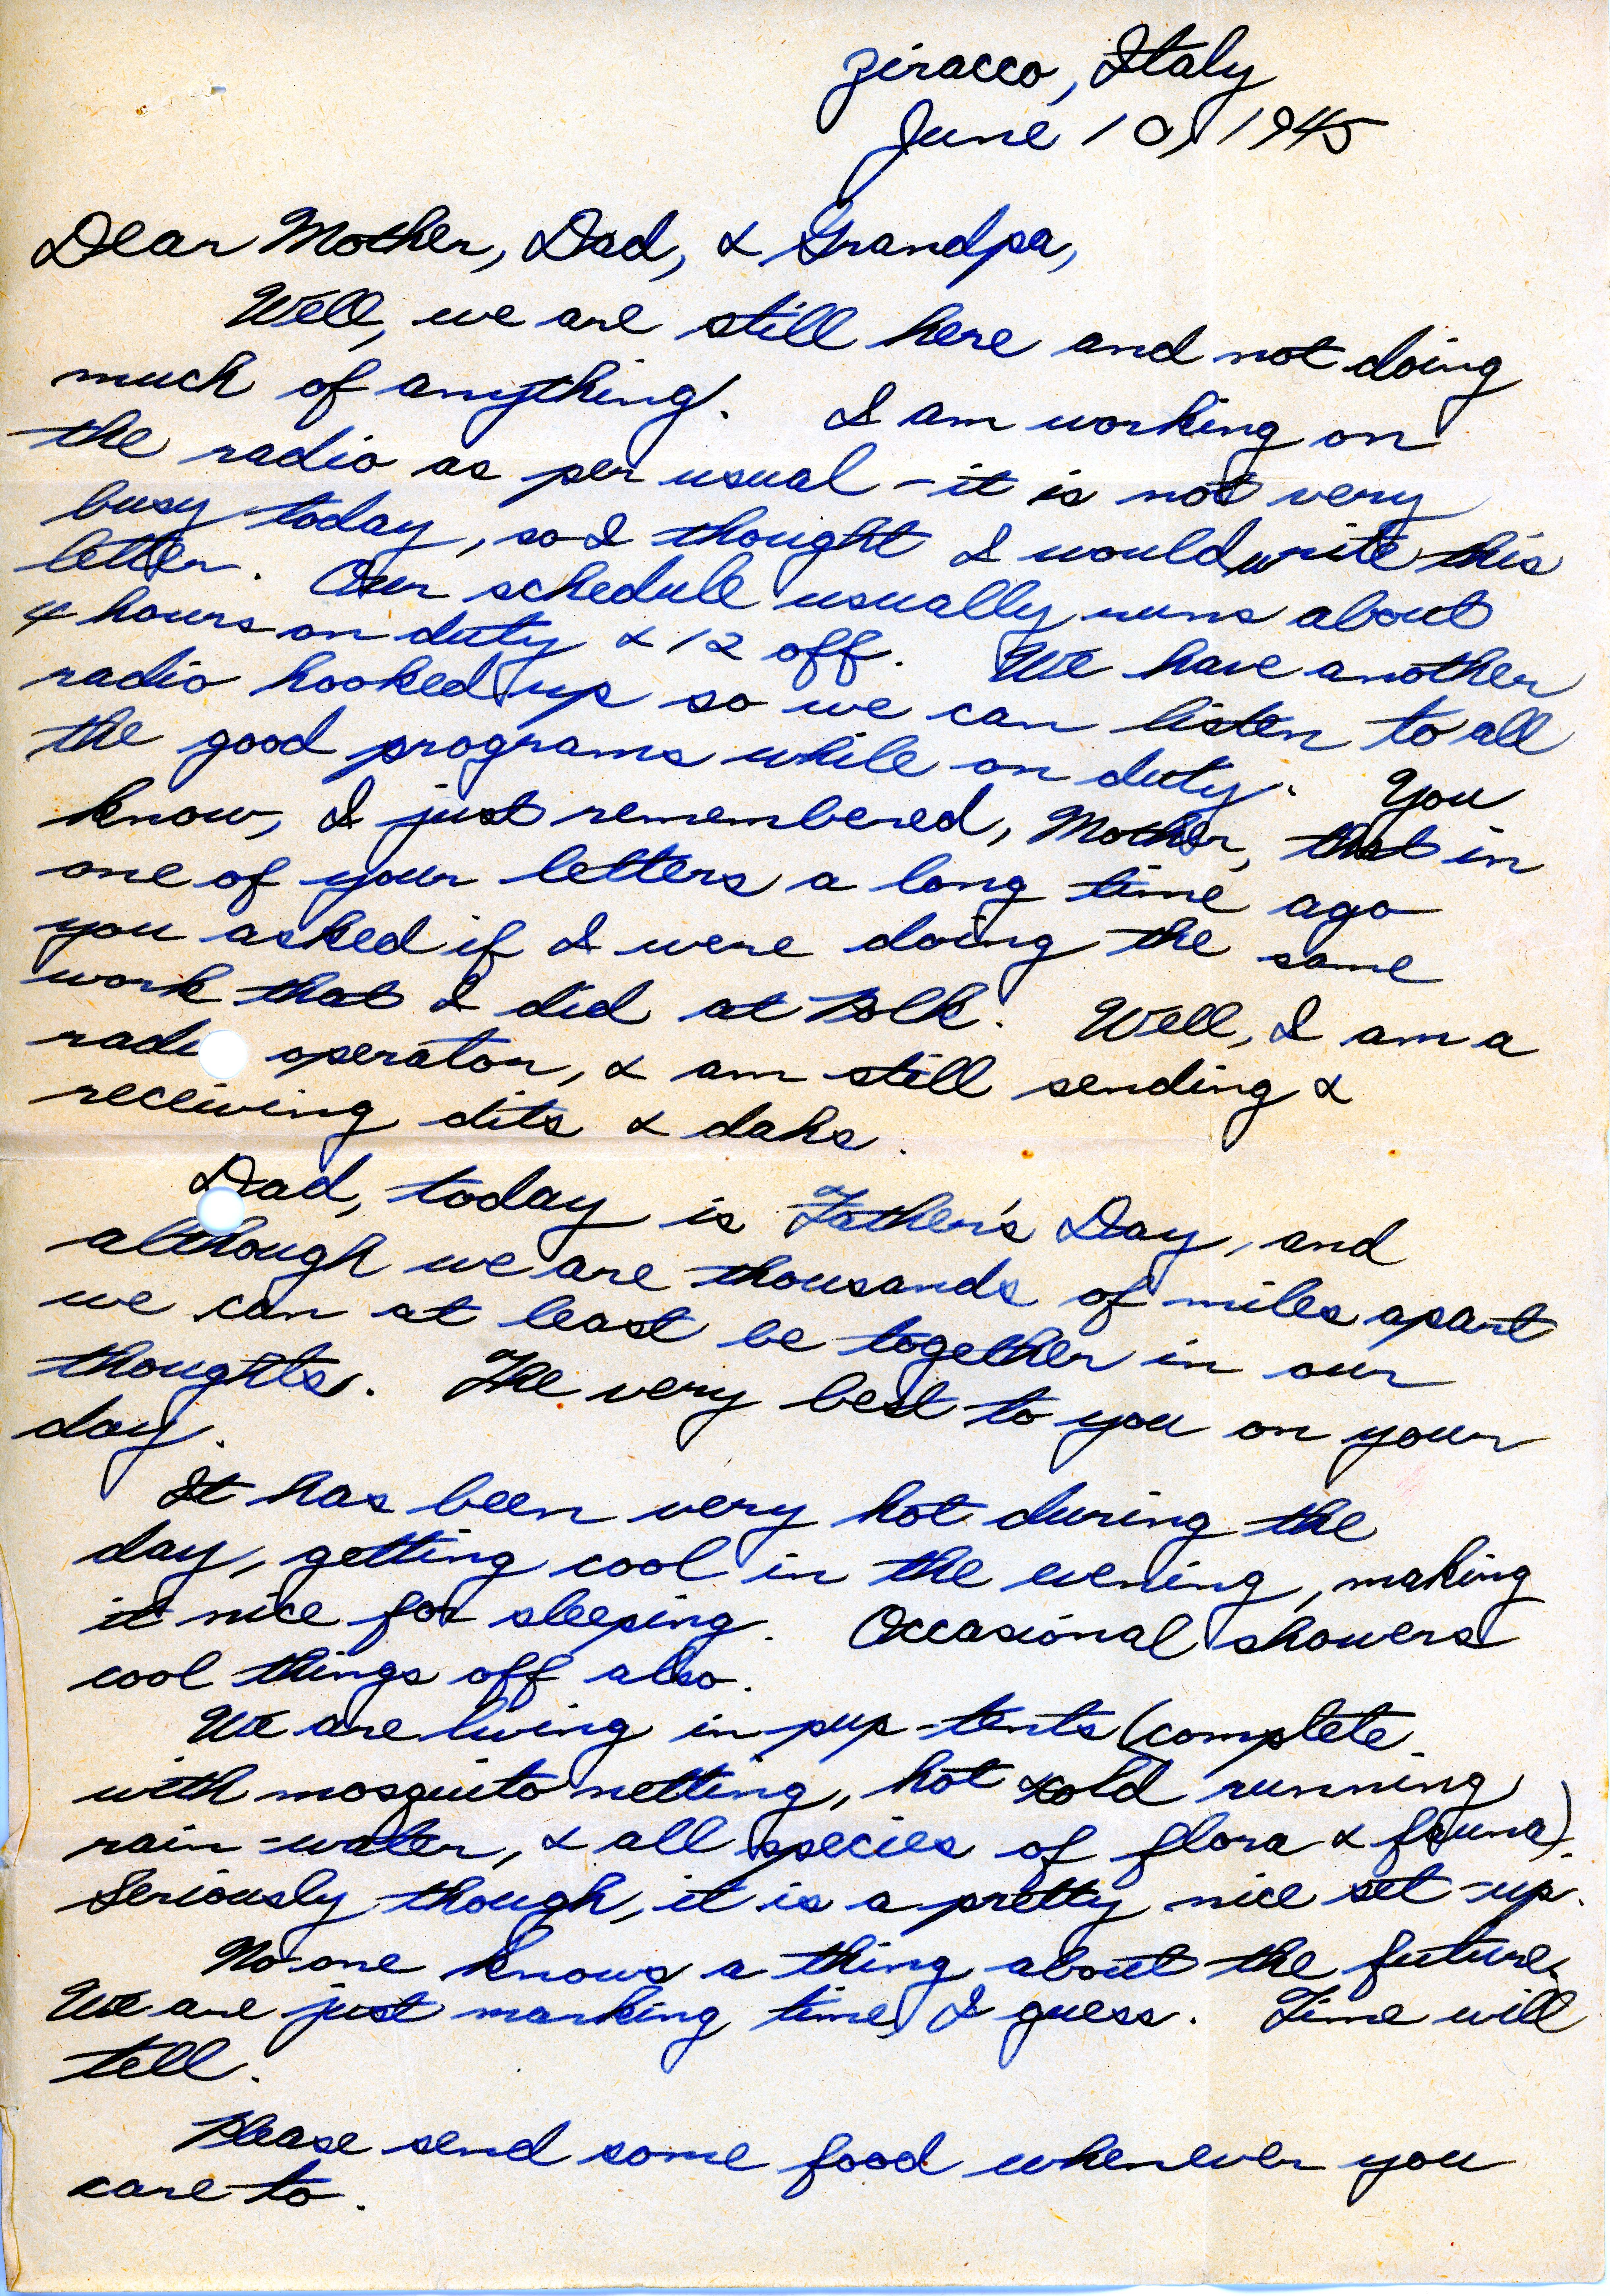 Ziracco, Italy
June 10, 1945
Dear Mother, Dad, & Grandpa,
Well, we are still here and not doing
much of anything. I am working on
the radio as per usual - it is not very
busy today, so I thought I would write this
letter. Our schedule usually runs about
4 hours on duty & 12 off. We have another
radio hooked up so we can listen to all
the good programs while on duty. You
know, I just remembered, Mother, that in
one of your letters a long time ago
you asked if I were doing the same
work that I did at Polk. Well, I am a
radi operator, & am still sending &
receiving dits & dahs.
Dad, today is Father's Day, and
although we are thousands of miles apart
we can at least be together in our
thoughts. The very best to you on your
day.
It has been very hot during the
day, getting cool in the evening, making
it nice for sleeping. Occasional showers
cool things off also.
We are living in pup-tents (complete
with mosquito netting, hot & cold running
rain-water, & all species of flora & fauna).
Seriously though, it is a pretty nice set-up.
No one knows a thing about the future.
We are just marking time, I guess. Time will
tell.
Please send some food whenever you
care to.